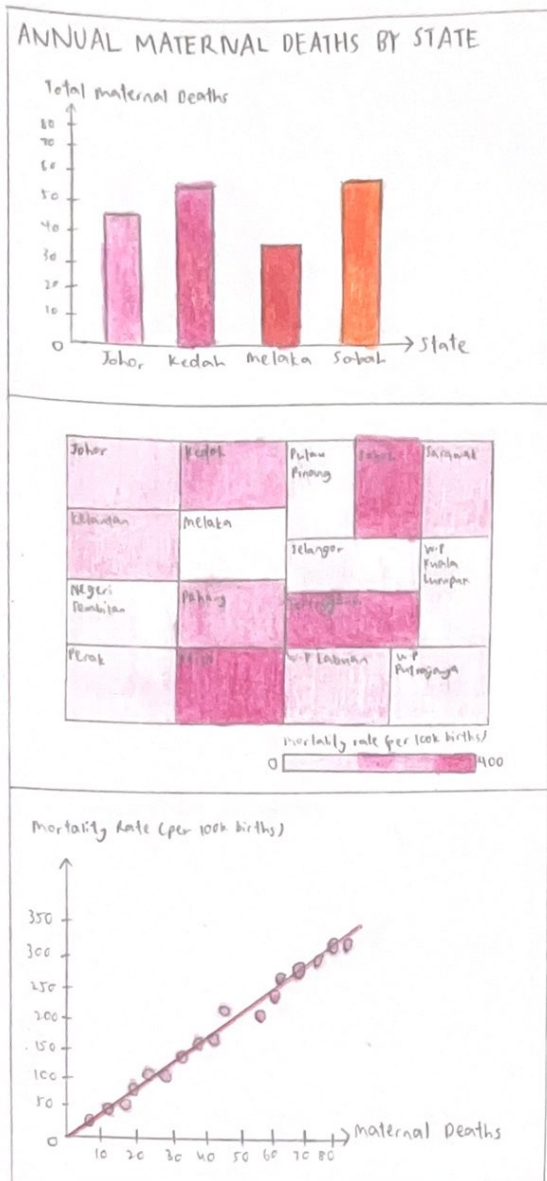 ANNUAL MATERNAL DEATHS BY STATE
Total Maternal Deaths
80
70
60
50
40
30
20
10
0
Johor Kedah Melaka Sabah
State
Johor
Kedah
Pulau
Pinang
Sabah
Sarawak
Kelantan
Melaka
Selangor
W.P
Kuala
Lumpur
Negeri
Sembilan
Pahang
Perak
W.P Labuan
W.P
Putrajaya
Mortality rate (per 100k births)
0
400
Mortality Rate (per 100k births)
350
300
250
200
150
100
50
0
10 20 30 40 50 60 70 80
Maternal Deaths